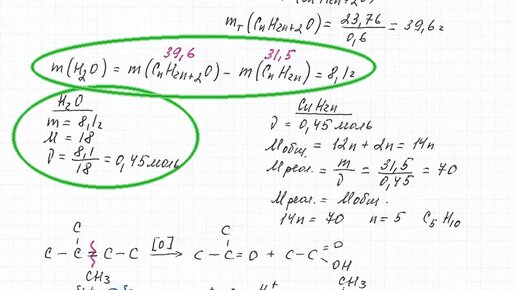 m_T(CnH2n+2O) = 23,76 / 0,6 = 39,6г
39,6 31,5
m(H2O) = m(CnH2n+2O) - m(CnH2n) = 8,1г
H2O
m = 8,1г
M = 18
ν = 8,1 / 18 = 0,45 моль
CnH2n
ν = 0,45 моль
Mобщ. = 12n + 2n = 14n
Mреал. = m / ν = 31,5 / 0,45 = 70
Mреал. = Mобщ.
14n = 70 n = 5 C5H10
C C O
C - C = C - C [O] → C - C = O + C - C OH
CH3 CH3